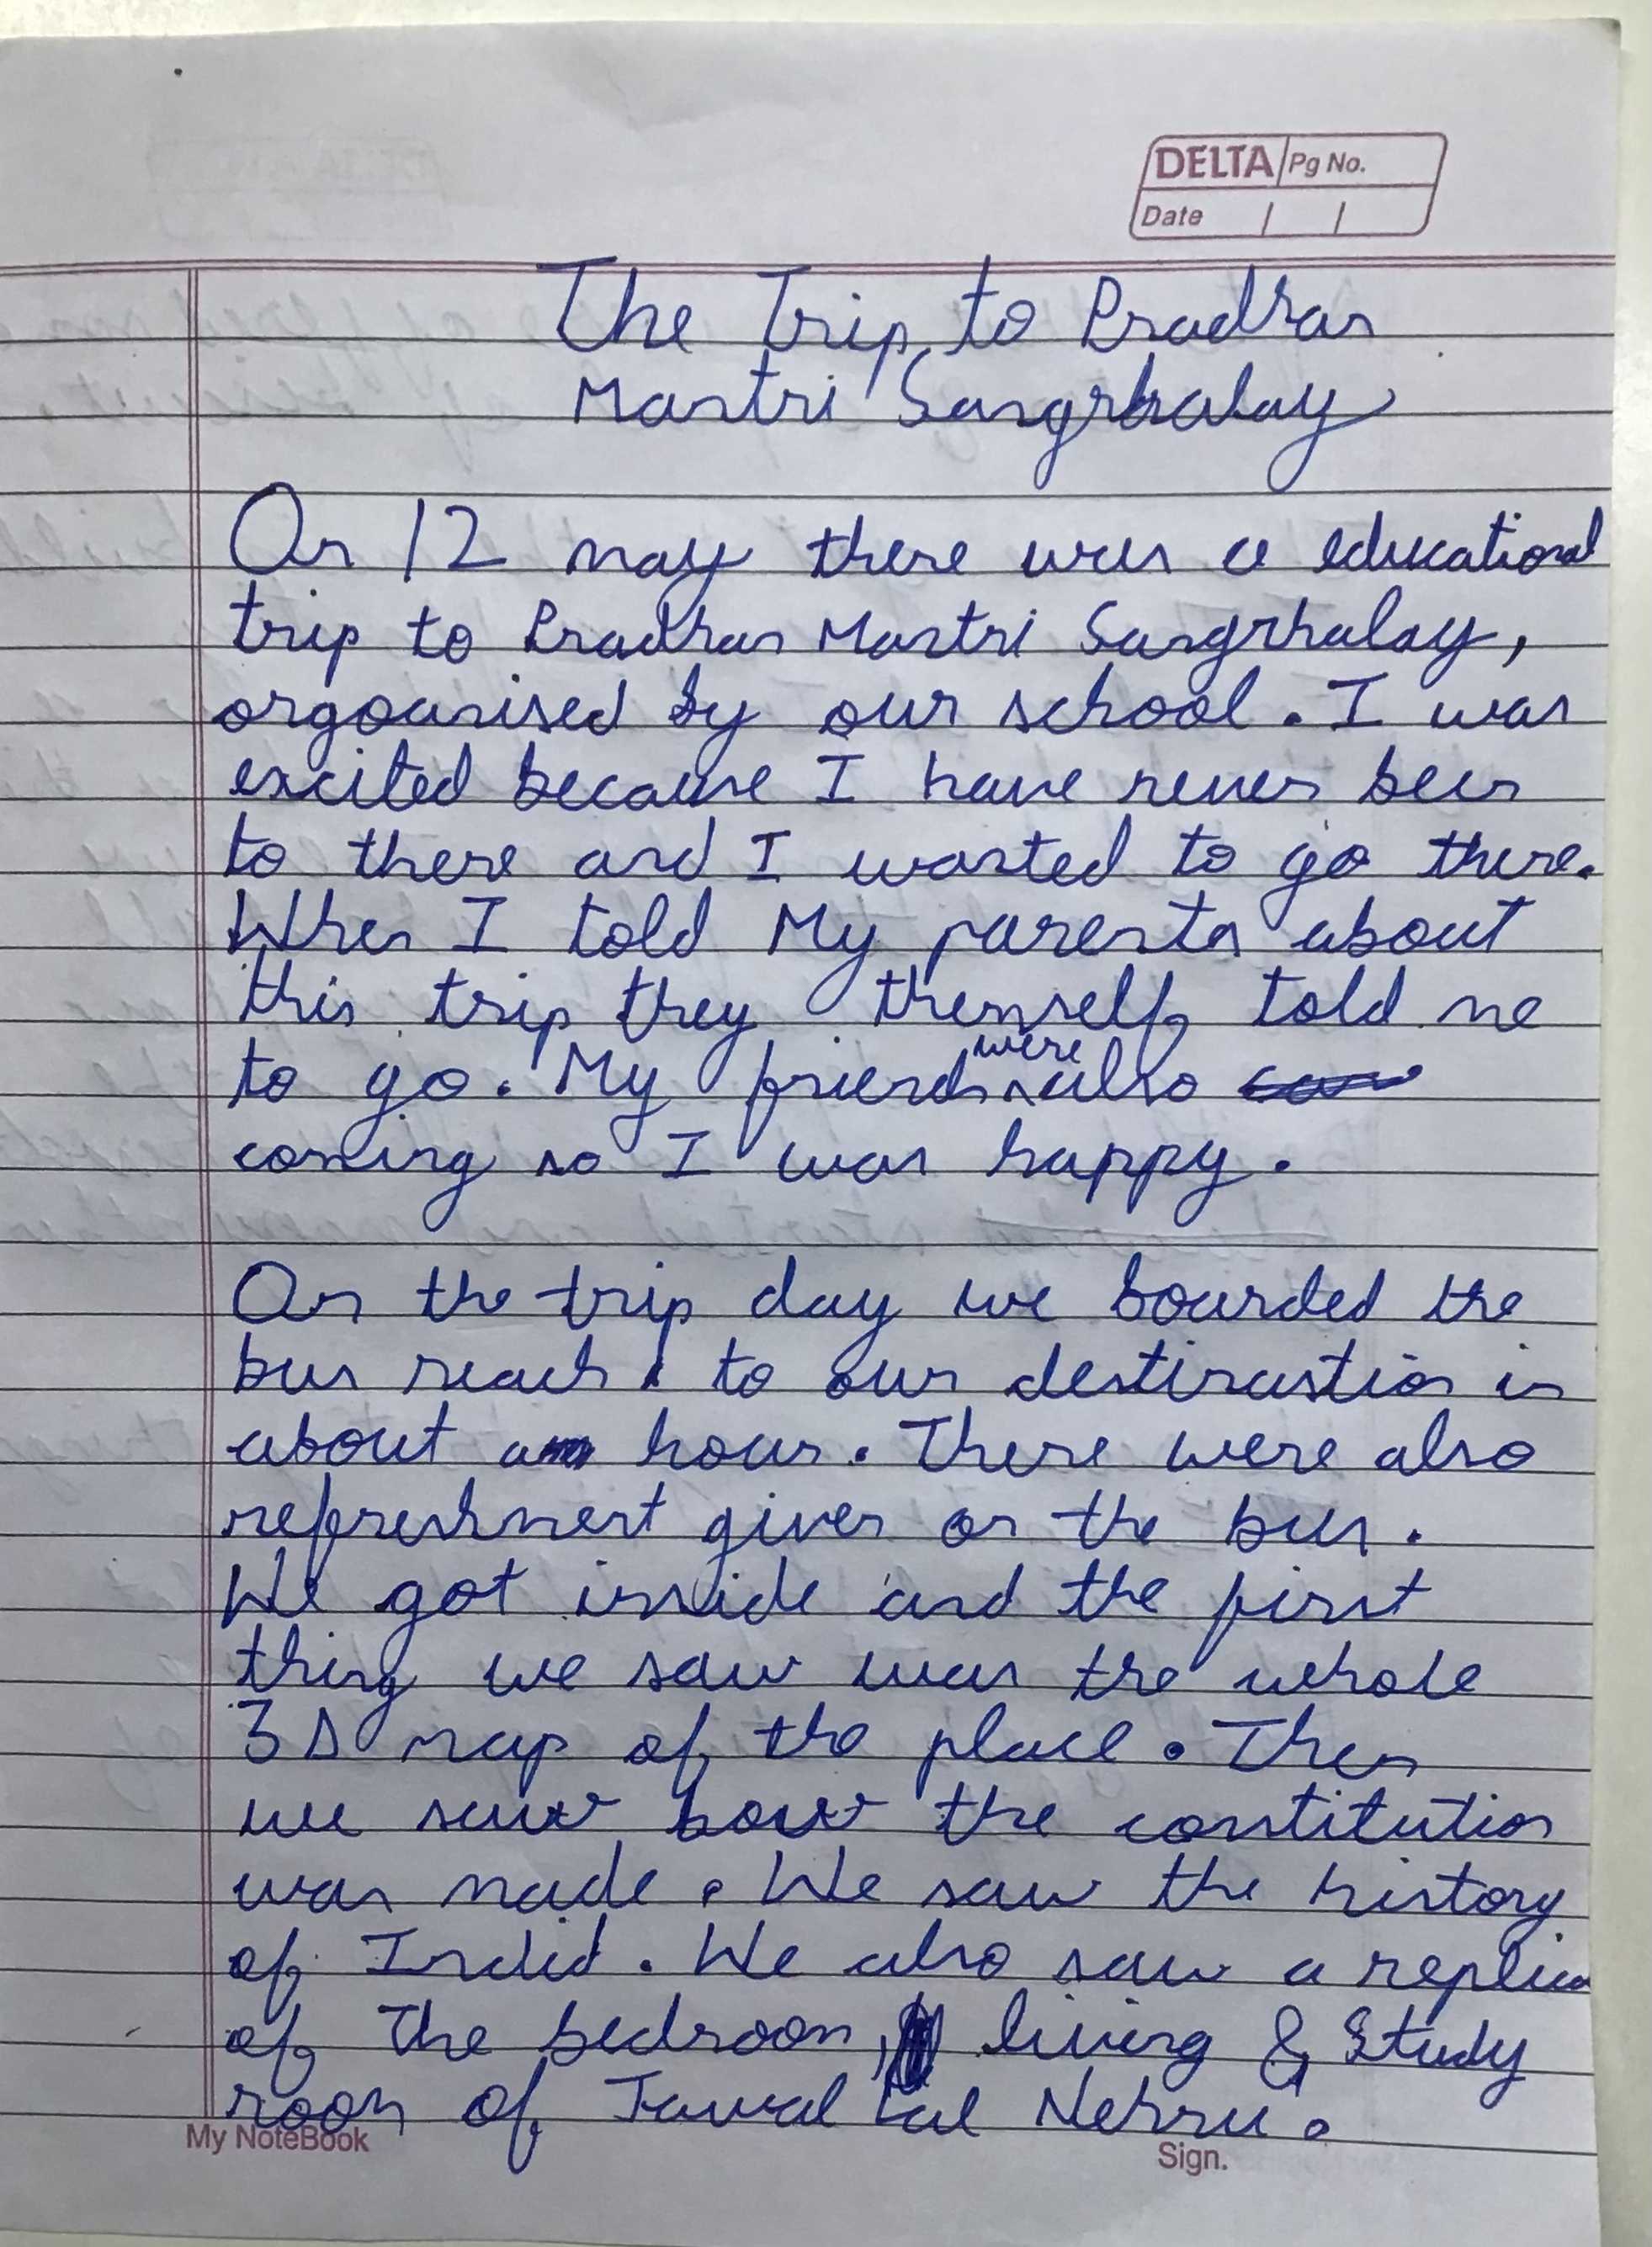 DELTA Pg No.
Date / /
The Trip to Pradhan
Mantri Sangrhalay
On 12 may there was a educational
trip to Pradhan Mantri Sangrhalay,
orgoanised by our school. I was
excited because I have never been
to there and I wanted to go there.
When I told My parents about
this trip they themself told me
to go. My friends were also
coming so I was happy.
On the trip day we boarded the
bus reach to our destination in
about an hour. There were also
refreshment given on the bus.
We got inside and the first
thing we saw was the whole
3D map of the place. Then
we saw how the constitution
was made. We saw the history
of India. We also saw a replica
of The bedroom, living & Study
room of Jawal Lal Nehru.
My NoteBook
Sign.